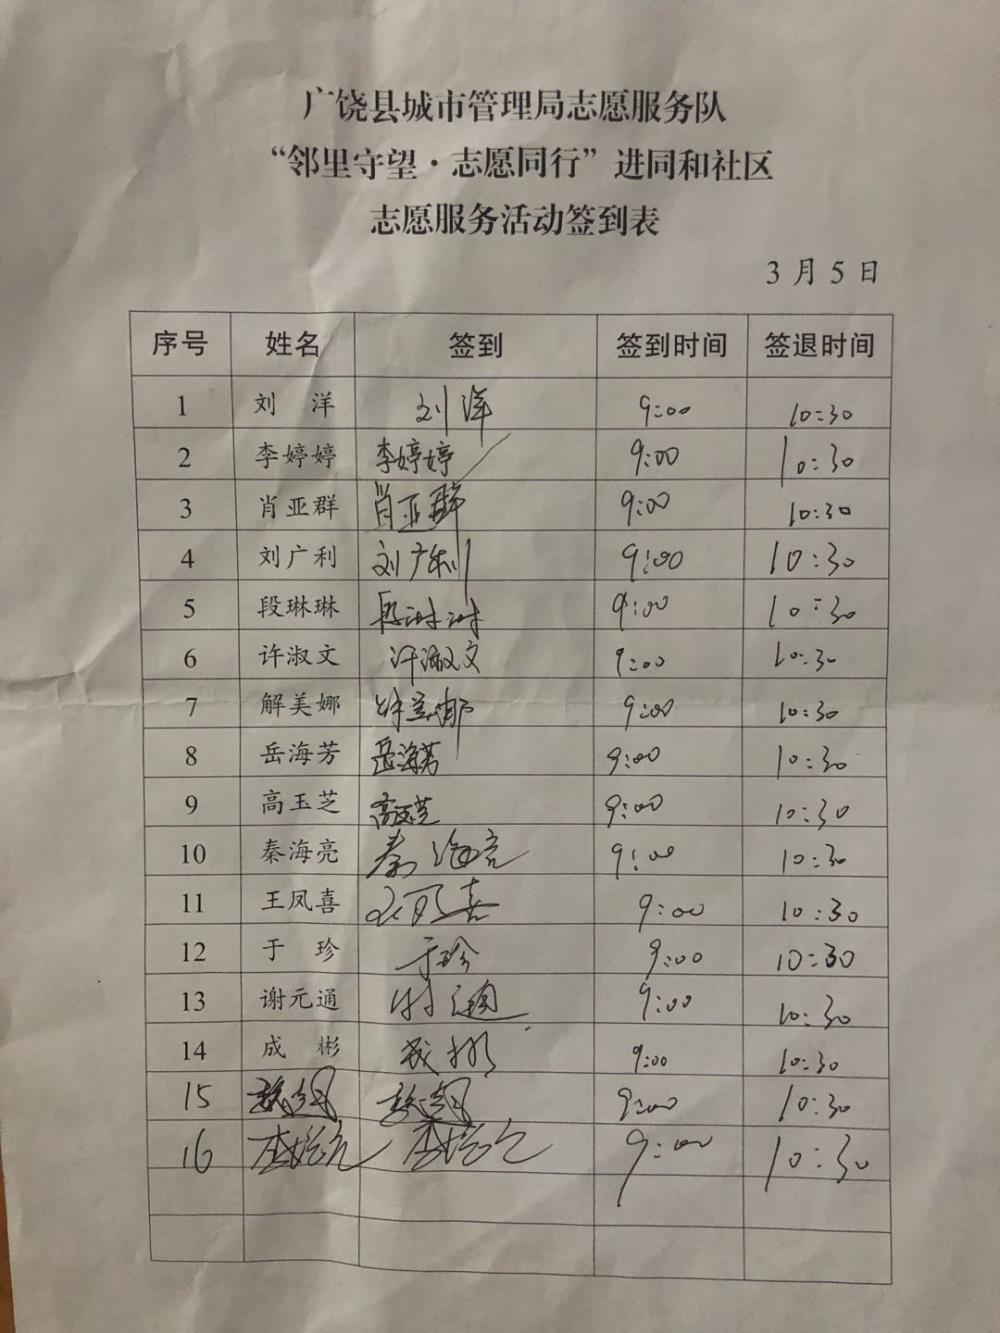 广饶县城市管理局志愿服务队
“邻里守望·志愿同行”进同和社区
志愿服务活动签到表
3月5日
序号 姓名 签到 签到时间 签退时间
1 刘洋 刘洋 9:00 10:30
2 李婷婷 李婷婷 9:00 10:30
3 肖亚群 肖亚群 9:00 10:30
4 刘广利 刘广利 9:00 10:30
5 段琳琳 段琳琳 9:00 10:30
6 许淑文 许淑文 9:00 10:30
7 解美娜 解美娜 9:00 10:30
8 岳海芳 岳海芳 9:00 10:30
9 高玉芝 高玉芝 9:00 10:30
10 秦海亮 秦海亮 9:00 10:30
11 王凤喜 王凤喜 9:00 10:30
12 于珍 于珍 9:00 10:30
13 谢元通 谢元通 9:00 10:30
14 成彬 成彬 9:00 10:30
15 9:00 10:30
16 9:00 10:30